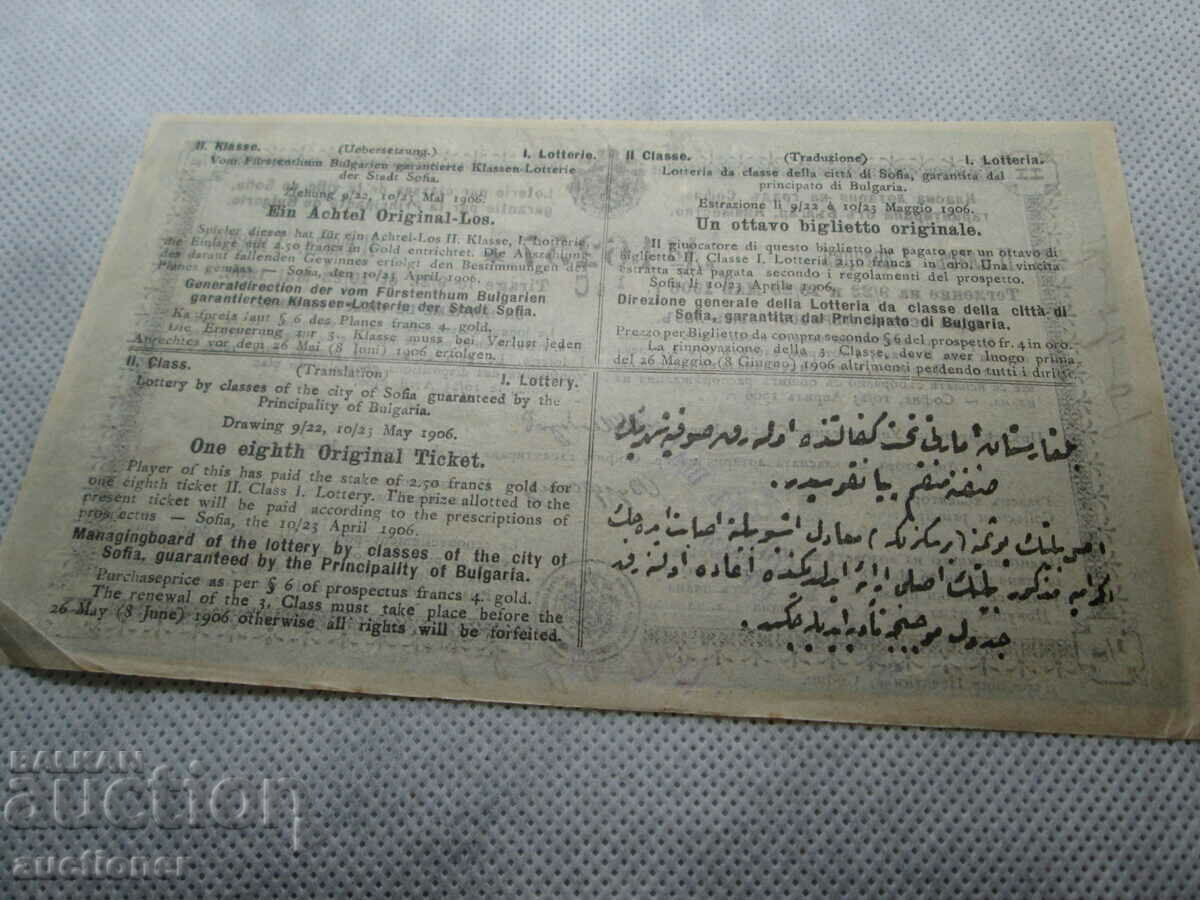 II. Klasse. (Uebersetzung.) I. Lotterie.
Vom Fürstenthum Bulgarien garantierte Klassen-Lotterie
der Stadt Sofia.
Ziehung 9/22, 10/23 Mai 1906.
Ein Achtel Original-Los.
Spieler dieses hat für ein Achtel-Los II. Klasse, I. Lotterie
die Einlage mit 2.50 francs in Gold entrichtet. Die Auszahlung
des darauf fallenden Gewinnes erfolgt den Bestimmungen des
Planes gemäss — Sofia, den 10/23 April 1906.
Generaldirection der vom Fürstenthum Bulgarien
garantierten Klassen-Lotterie der Stadt Sofia.
Kaufpreis laut § 6 des Planes francs 4. gold.
Die Erneuerung zur 3. Klasse muss bei Verlust jeden
Anrechtes vor dem 26 Mai (8 Juni) 1906 erfolgen.
II Classe. (Traduzione) I. Lotteria.
Lotteria da classe della città di Sofia, garantita dal
principato di Bulgaria.
Estrazione li 9/22 è 10/23 Maggio 1906.
Un ottavo biglietto originale.
Il giuocatore di questo biglietto ha pagato per un ottavo di
biglietto II. Classe I. Lotteria 2.50 francs in oro. Una vincita
estratta sarà pagata secondo i regolamenti del prospetto.
Sofia li 10/23 Aprile 1906.
Direzione generale della Lotteria da classe della città di
Sofia, garantita dal Principato di Bulgaria.
Prezzo per Biglietto da compra secondo § 6 del prospetto fr. 4 in oro.
La rinnovazione della 3. Classe, deve aver luogo prima
del 26 Maggio (8 Giugno) 1906 altrimenti perdendo tutti i diritti
II. Class. (Translation) I. Lottery.
Lottery by classes of the city of Sofia guaranteed by the
Principality of Bulgaria.
Drawing 9/22, 10/23 May 1906.
One eighth Original Ticket.
Player of this has paid the stake of 2.50 francs gold for
one eighth ticket II. Class I. Lottery. The prize allotted to the
present ticket will be paid according to the prescriptions of
prospectus — Sofia, the 10/23 April 1906.
Managingboard of the lottery by classes of the city of
Sofia, guaranteed by the Principality of Bulgaria.
Purchaseprice as per § 6 of prospectus francs 4. gold.
The renewal of the 3. Class must take place before the
26 May (8 June) 1906 otherwise all rights will be forfeited.
بلغارستان امارتی تحت کفالتنده اولەرق صوفیه
پیانقوسیدر.
معادل اشبو بیلته اصابت ایده جك
اکرامیه مذکور بیلتك اصلی ارائه ایدلدکده اعاده اولنەرق
جدول موجبنجه تأدیه ایدیله جکدر.
BALKAN
auction
auctioner